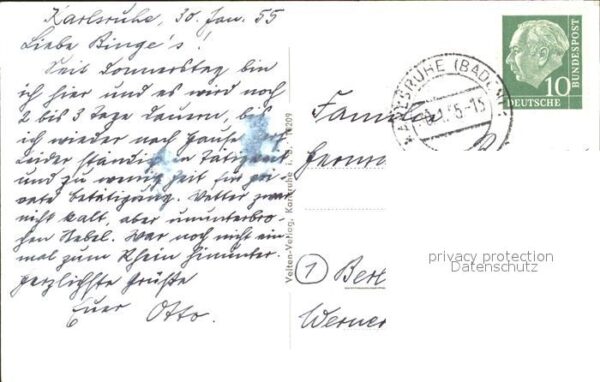 Karlsruhe, 30. Jan. 55
Liebe Binge's!
Seit Donnerstag bin
ich hier und es wird noch
2 bis 3 Tage dauern, bis
ich wieder nach Hause
Leider ständig in Tätigkeit
und zu wenig Zeit für pri-
vate Betätigung. Wetter zwar
nicht kalt, aber ununterbro-
chen Nebel. War noch nicht ein-
mal zum Rhein hinunter.
Herzlichste Grüße
Euer Otto.
Velten-Verlag, Karlsruhe i. B.
KARLSRUHE (BADEN)
10
DEUTSCHE
BUNDESPOST
Familie
Herma
1 Berl
Werner
privacy protection
Datenschutz